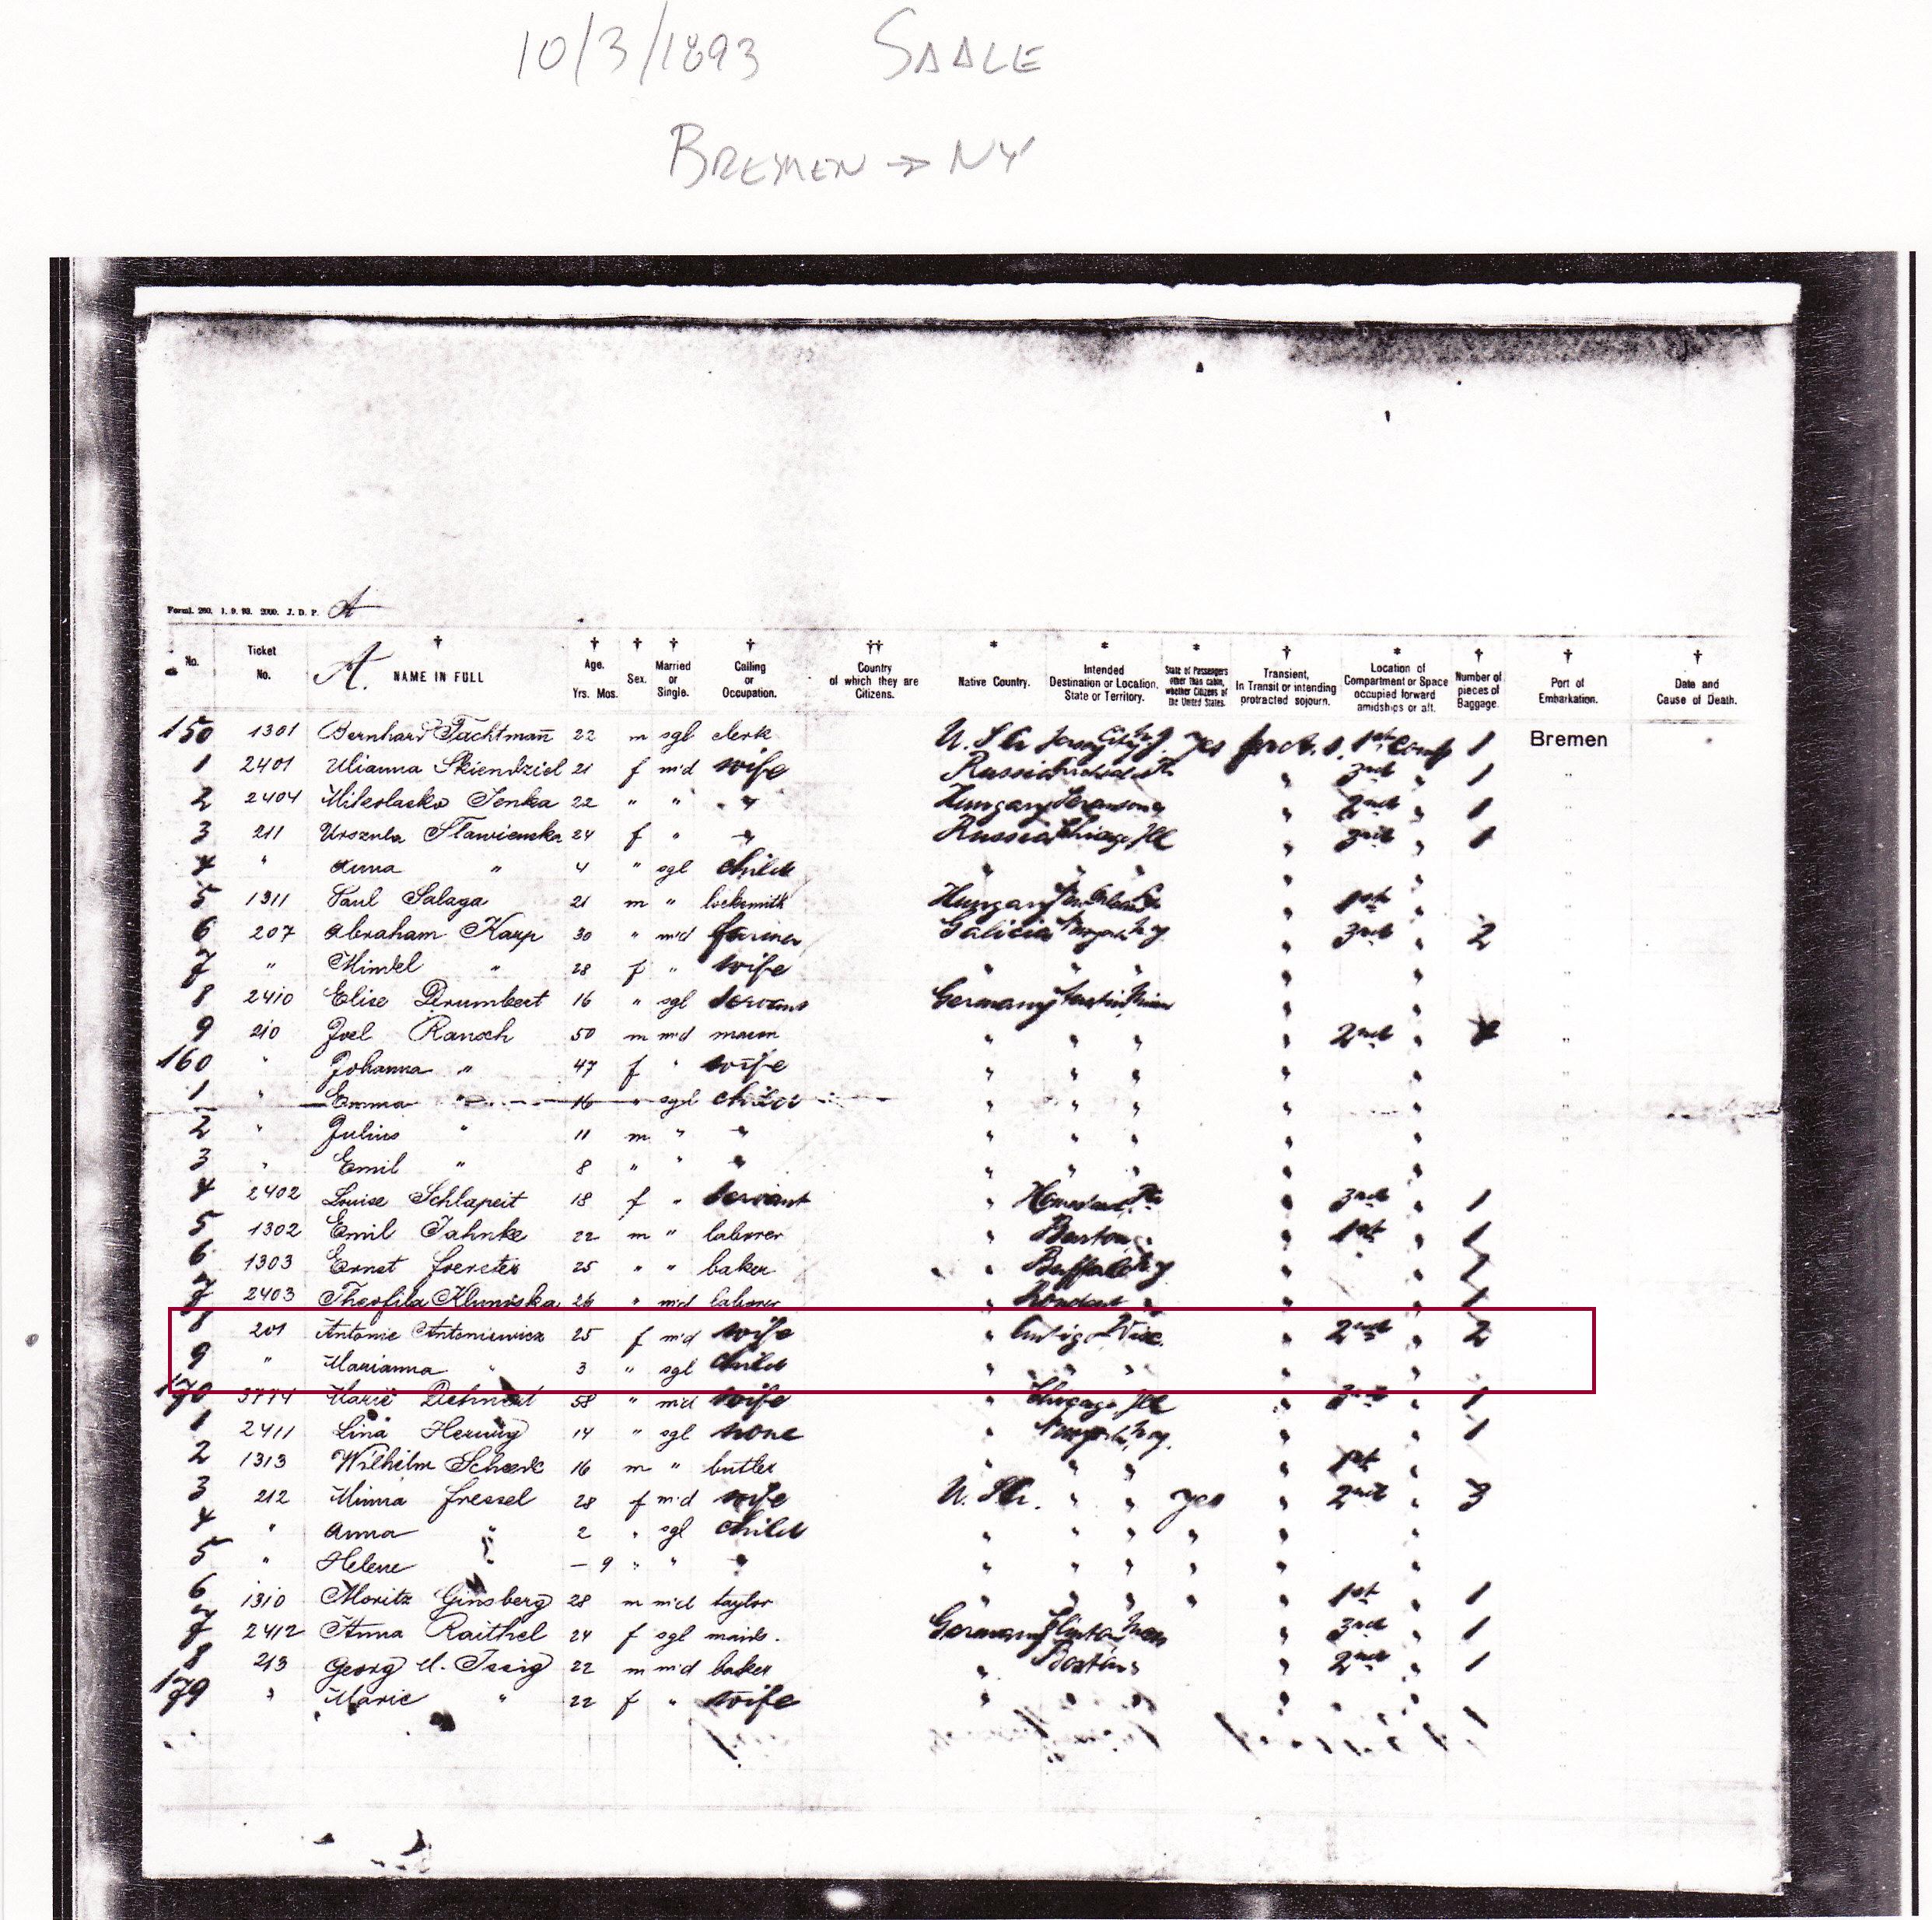 10/3/1893 SAALE
BREMEN → NY
Forml. 260. 1. 9. 93. 2000. J. D. P. A
No. Ticket No. A. † NAME IN FULL † Age. Yrs. Mos. † Sex. † Married or Single. † Calling or Occupation. †† Country of which they are Citizens. * Native Country. * Intended Destination or Location, State or Territory. * State of Passengers other than cabin, whether Citizens of the United States. † Transient, In Transit or intending protracted sojourn. * Location of Compartment or Space occupied forward amidships or aft. † Number of pieces of Baggage. † Port of Embarkation. † Date and Cause of Death.
150 1301 Bernhard Tachtman 22 m sgl clerk U. S. A. Jersey City yes 1st 1 Bremen
1 2401 Ulianna Skiendziel 21 f m'd wife Russia 3rd " 1 "
2 2404 22 " " " Hungary 2nd " 1 "
3 211 Urszula 24 f " " Russia Chicago Ill " 3rd " 1 "
4 " Anna " 4 " sgl child " " " " " "
5 1311 Paul Salaga 21 m " locksmith Hungary " 1st " "
6 207 Abraham Karp 30 " m'd farmer Galicia " 3rd " 2 "
7 " Mindel " 28 f " wife " " " " " "
8 2410 Elise 16 " sgl servant Germany " " "
9 210 Joel Rausch 50 m m'd mason " " " " 2nd " 4 "
160 " Johanna " 47 f " wife " " " " " "
1 " Emma " 16 " sgl child " " " " "
2 " Julius " 11 m " " " " " " "
3 " Emil " 8 " " " " " " " "
4 2402 Louise Schlapeit 18 f " servant " " 3rd " 1
5 1302 Emil Jahnke 22 m " laborer " " 1st " 1
6 1303 Ernst 25 " " baker " Buffalo N.Y. " " " 1
7 2403 Theofila 26 " m'd laborer " " " 1
8 201 Antonie Antoniewicz 25 f m'd wife " Wisc. " 2nd " 2
9 " Marianna " 3 " sgl child " " " " " "
170 3774 Marie 58 " m'd wife " Chicago Ill " 3rd " 1
1 2411 Lina Herwig 14 " sgl none " " " 1
2 1313 Wilhelm 16 m " butler " " " " 1st "
3 212 Minna Fressel 28 f m'd wife U. S. A. " " yes " 2nd " 3
4 " Anna " 2 " sgl child " " " " " "
5 " Helene " — 9 " " " " " " " " "
6 1310 Moritz Ginsberg 28 m m'd taylor " " " " " 1st " 1
7 2412 Anna Raithel 24 f sgl maids. Germany " 3rd " 1
8 213 Georg U. Issig 22 m m'd baker " Boston " 2nd " 1
179 " Marie " 22 f " wife " " " " " " 1